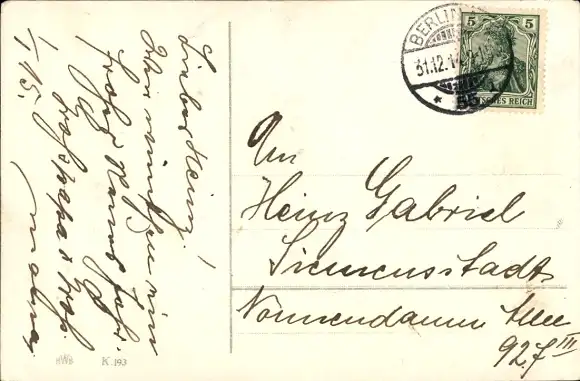 Lieber Heinz!
Wir wünschen ein
frohes Neues Jahr.
1/1 15.
BERLIN
31.12.14
5
DEUTSCHES REICH
An
Heinz Gabriel
Siemensstadt
Nonnendamm Allee
92.f III
HWB K.193